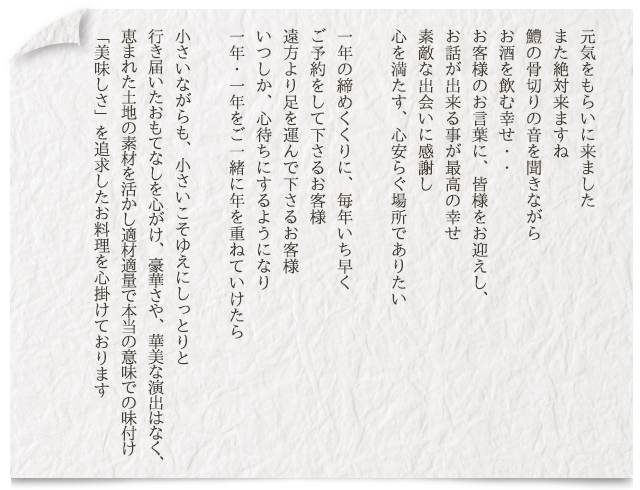 元気をもらいに来ました
また絶対来ますね
鱧の骨切りの音を聞きながら
お酒を飲む幸せ・・
お客様のお言葉に、皆様をお迎えし、
お話が出来る事が最高の幸せ
素敵な出会いに感謝し
心を満たす、心安らぐ場所でありたい
一年の締めくくりに、毎年いち早く
ご予約をして下さるお客様
遠方より足を運んで下さるお客様
いつしか、心待ちにするようになり
一年・一年をご一緒に年を重ねていけたら
小さいながらも、小さいこそゆえにしっとりと
行き届いたおもてなしを心がけ、豪華さや、華美な演出はなく、
恵まれた土地の素材を活かし適材適量で本当の意味での味付け
「美味しさ」を追求したお料理を心掛けております